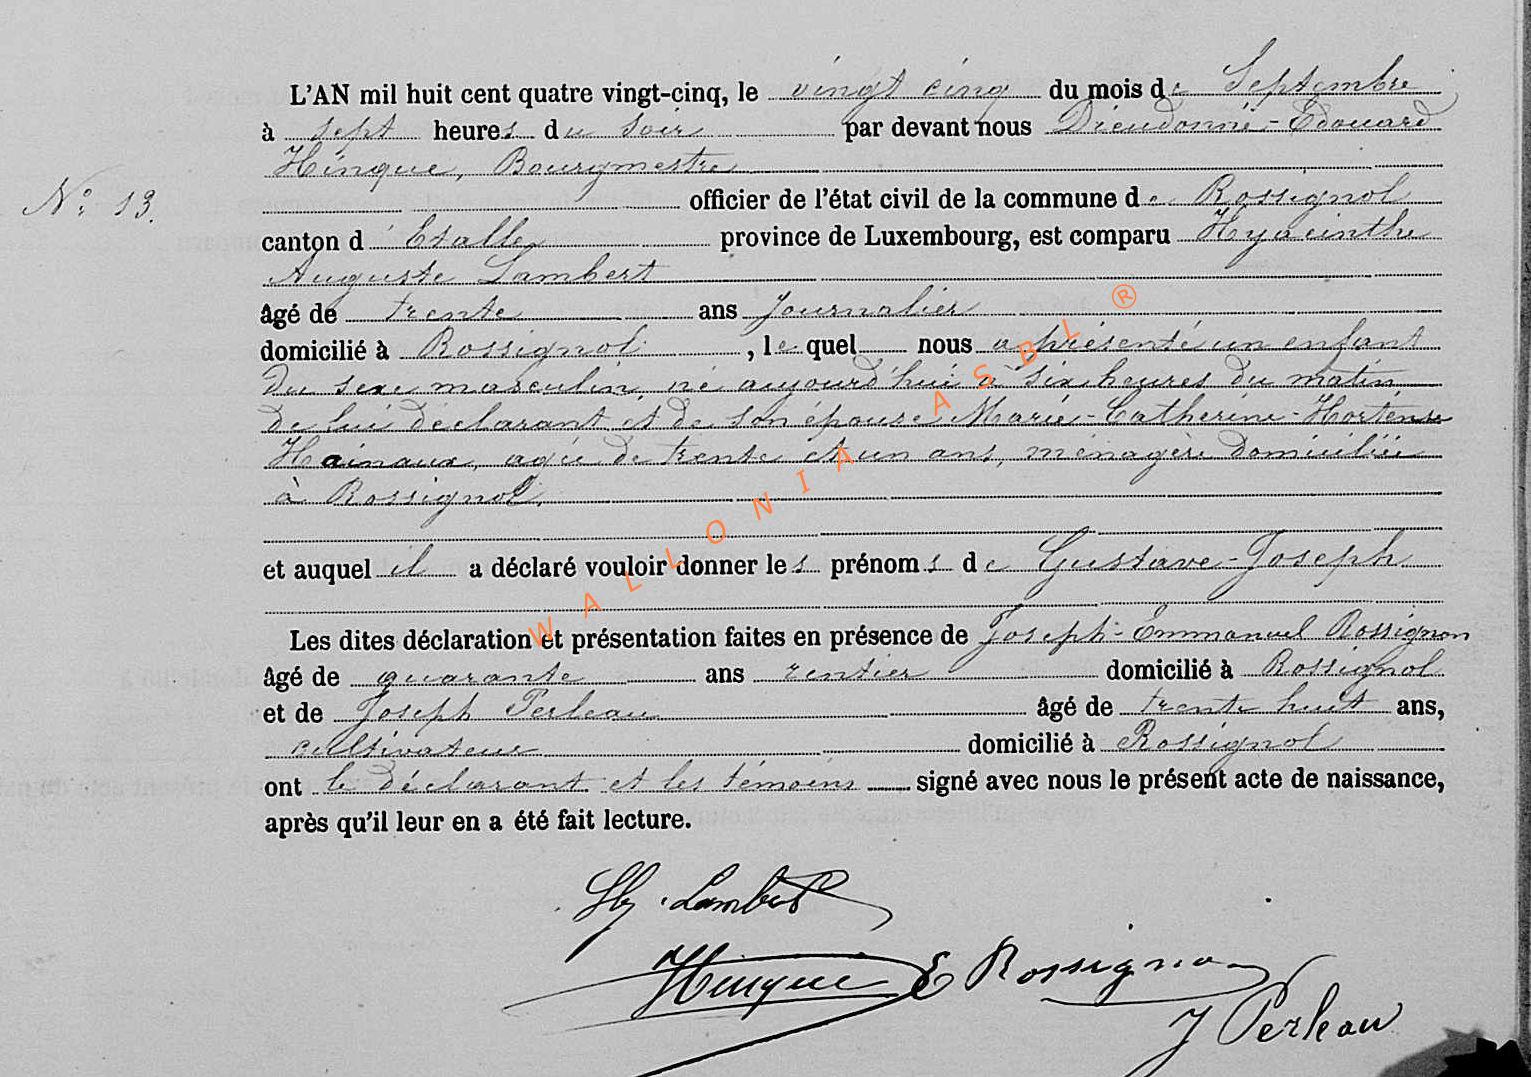 L'AN mil huit cent quatre vingt-cinq, le vingt cinq du mois de Septembre
à sept heures du soir par devant nous Dieudonné-Edouard
Hinque, Bourgmestre
officier de l'état civil de la commune de Rossignol
N° 13.
canton d'Etalle, province de Luxembourg, est comparu Hyacinthe
Auguste Lambert
âgé de trente ans journalier
domicilié à Rossignol, lequel nous a présenté un enfant
du sexe masculin, né aujourd'hui à six heures du matin
de lui déclarant et de son épouse Marie-Catherine-Hortense
Hainaux, agée de trente et un ans, ménagère domiciliée
à Rossignol.
et auquel il a déclaré vouloir donner les prénoms de Gustave-Joseph
Les dites déclaration et présentation faites en présence de Joseph-Emmanuel Rossignon
âgé de quarante ans rentier domicilié à Rossignol
et de Joseph Perleau âgé de trente huit ans,
cultivateur domicilié à Rossignol
ont le déclarant et les témoins signé avec nous le présent acte de naissance,
après qu'il leur en a été fait lecture.
Hy. Lambert
Hinque E Rossignon
J Perleau
WALLONIA ASBL ®